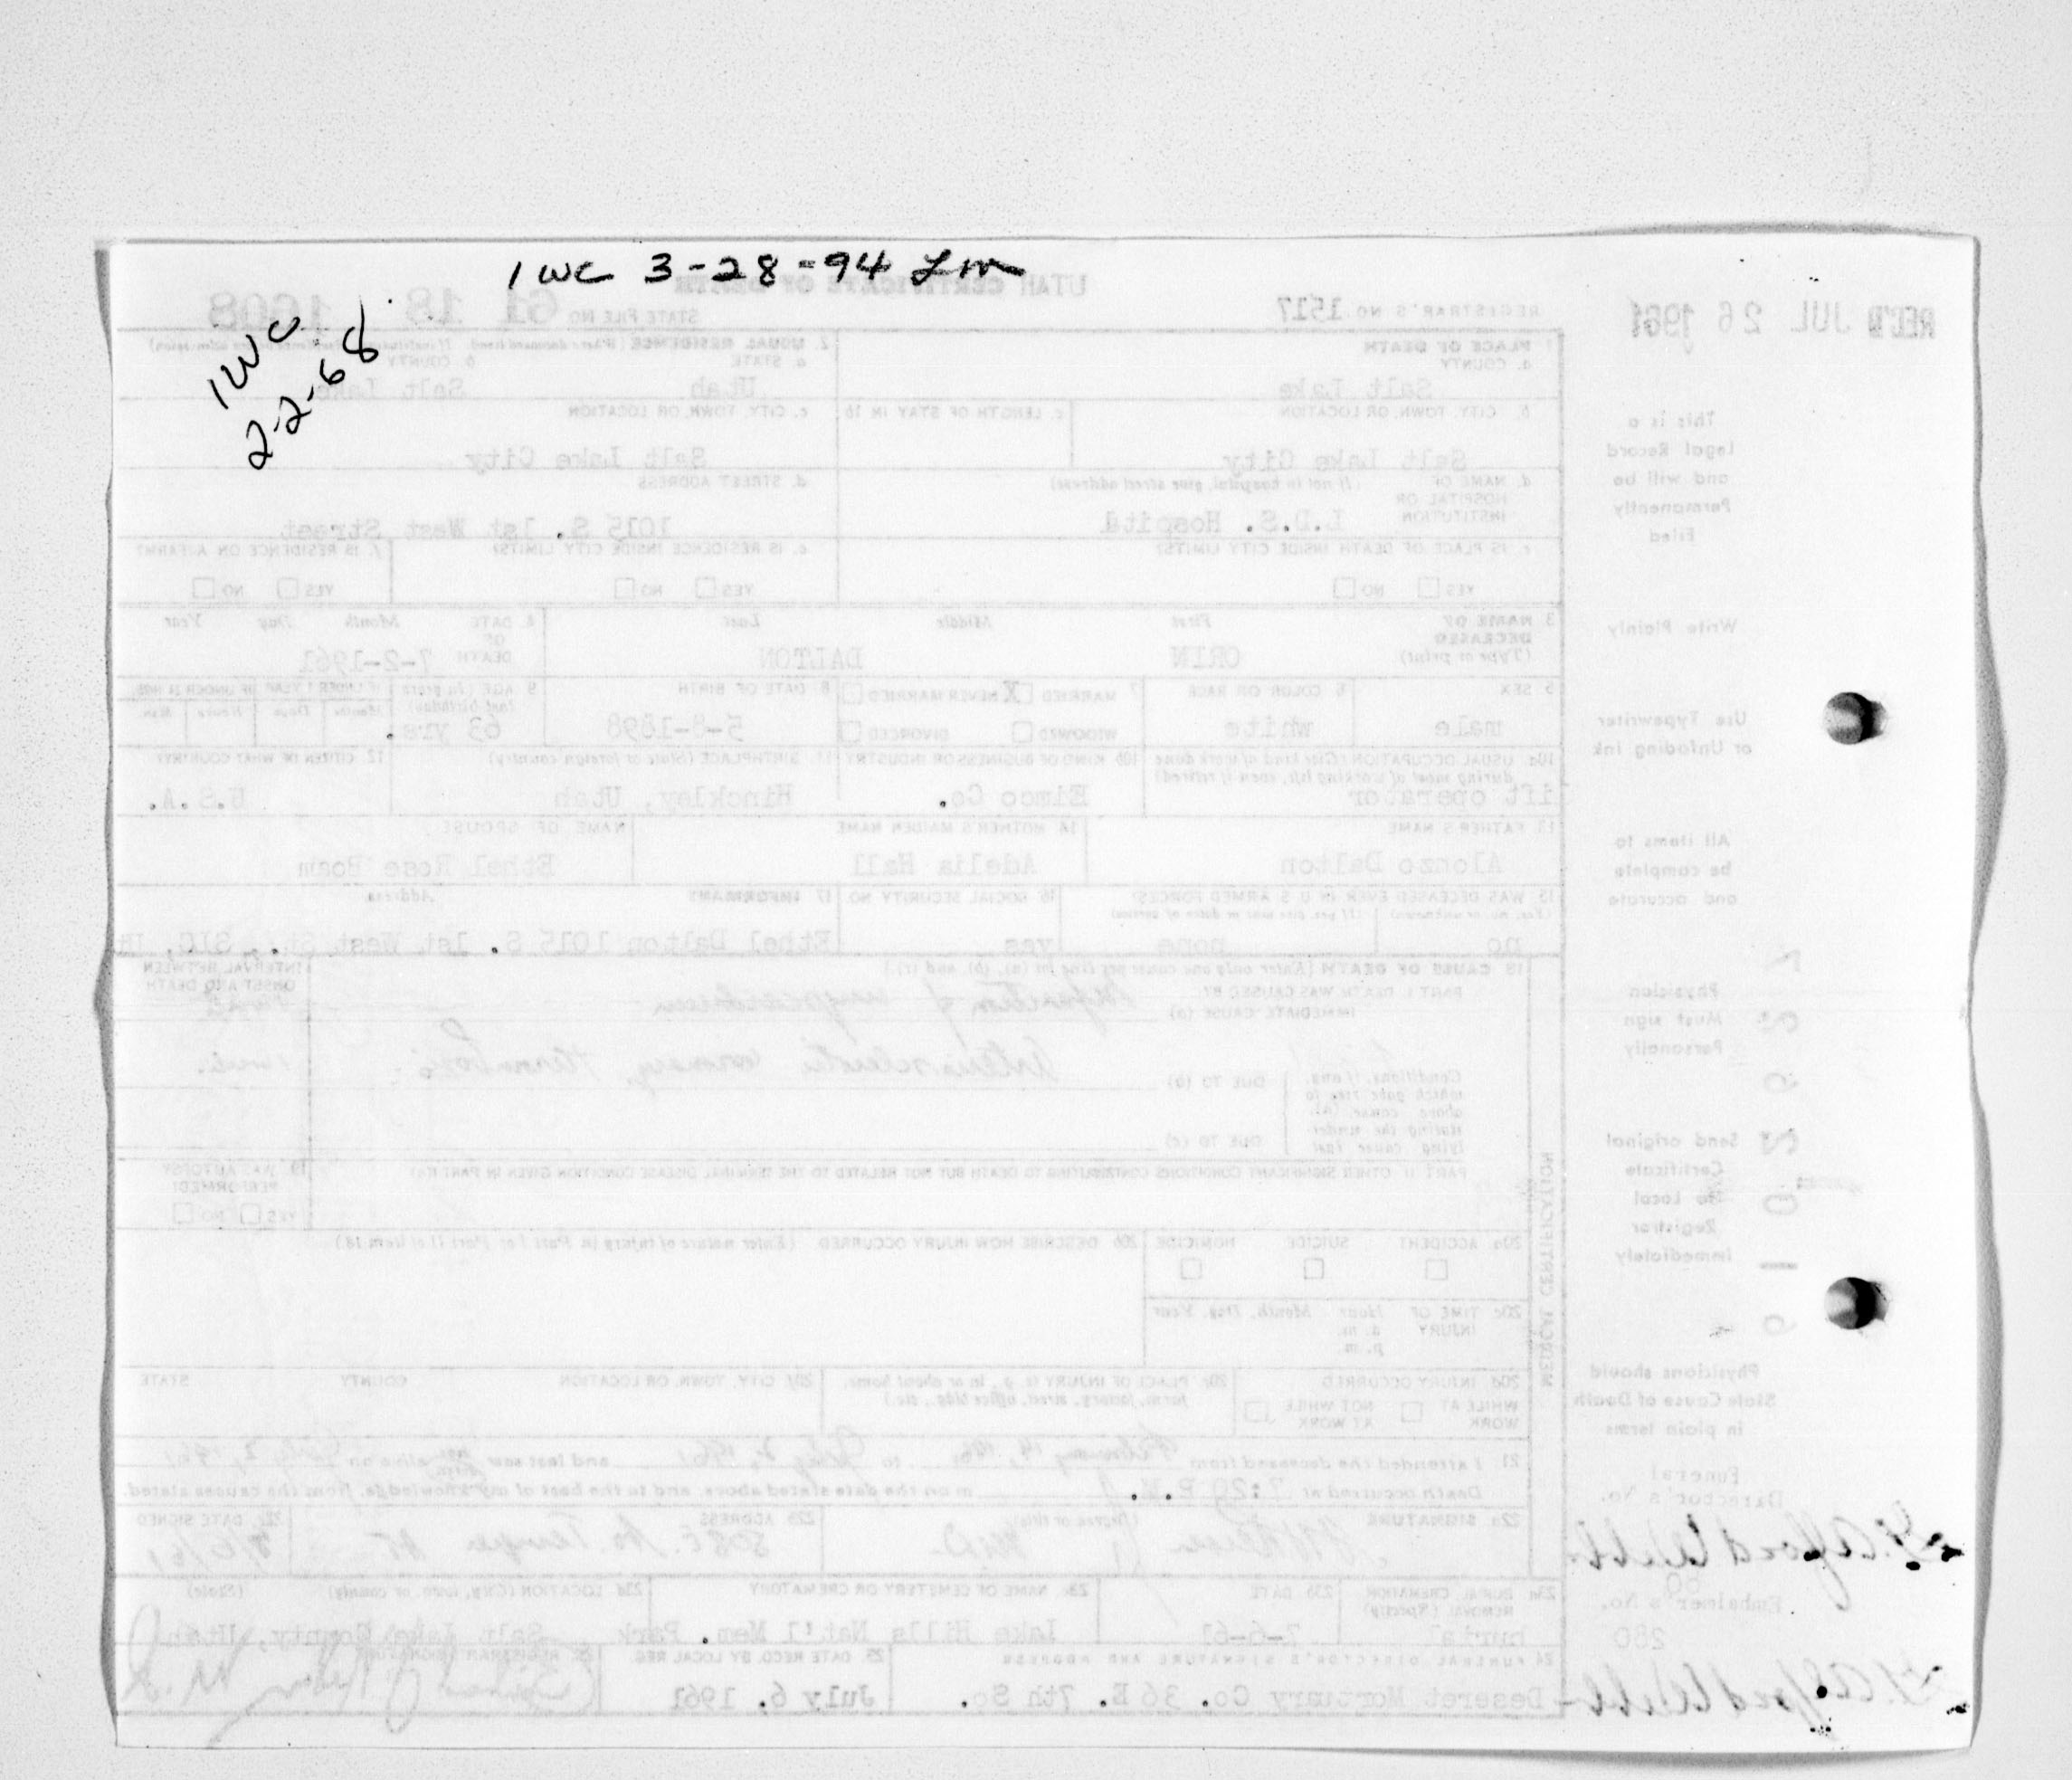 1 WC 3-28-94 Lm
1 WC
2-2-68
UTAH CERTIFICATE OF DEATH
REC'D JUL 26 1961
REGISTRAR'S NO. 1517
STATE FILE NO. 61 18 1608
1. PLACE OF DEATH
a. COUNTY
Salt Lake
2. USUAL RESIDENCE
a. STATE
Utah
b. COUNTY
Salt Lake
b. CITY, TOWN, OR LOCATION
Salt Lake City
c. LENGTH OF STAY IN 1b
c. CITY, TOWN, OR LOCATION
Salt Lake City
d. NAME OF HOSPITAL OR INSTITUTION (If not in hospital, give street address)
L.D.S. Hospital
d. STREET ADDRESS
1015 S. 1st West Street
e. IS PLACE OF DEATH INSIDE CITY LIMITS?
YES NO
e. IS RESIDENCE INSIDE CITY LIMITS?
YES NO
f. IS RESIDENCE ON A FARM?
YES NO
3. NAME OF DECEASED (Type or print)
First Middle Last
ORIN DALTON
4. DATE OF DEATH
Month Day Year
7-2-1961
5. SEX
male
6. COLOR OR RACE
white
7. MARRIED X NEVER MARRIED
WIDOWED DIVORCED
8. DATE OF BIRTH
5-8-1898
9. AGE (In years last birthday)
63 yrs.
IF UNDER 1 YEAR
Months Days
IF UNDER 24 HRS.
Hours Min.
10a. USUAL OCCUPATION (Give kind of work done during most of working life, even if retired)
lift operator
10b. KIND OF BUSINESS OR INDUSTRY
Eimco Co.
11. BIRTHPLACE (State or foreign country)
Hinckley, Utah
12. CITIZEN OF WHAT COUNTRY
U.S.A.
13. FATHER'S NAME
Alonzo Dalton
14. MOTHER'S MAIDEN NAME
Adelia Hall
NAME OF SPOUSE
Ethel Rose
15. WAS DECEASED EVER IN U.S. ARMED FORCES?
(Yes, no, or unknown) (If yes, give war or dates of service)
no none
16. SOCIAL SECURITY NO.
yes
17. INFORMANT Address
Ethel Dalton 1015 S. 1st West St., SLC,
18. CAUSE OF DEATH (Enter only one cause per line for (a), (b), and (c).)
PART I. DEATH WAS CAUSED BY:
IMMEDIATE CAUSE (a) Infarction of myocardium
INTERVAL BETWEEN ONSET AND DEATH
Conditions, if any, which gave rise to above cause (a), stating the underlying cause last
DUE TO (b) coronary thrombosis
DUE TO (c)
PART II. OTHER SIGNIFICANT CONDITIONS CONTRIBUTING TO DEATH BUT NOT RELATED TO THE TERMINAL DISEASE CONDITION GIVEN IN PART I(a)
19. WAS AUTOPSY PERFORMED?
YES NO
MEDICAL CERTIFICATION
20a. ACCIDENT SUICIDE HOMICIDE
20b. DESCRIBE HOW INJURY OCCURRED (Enter nature of injury in Part I or Part II of item 18.)
20c. TIME OF INJURY
Hour Month, Day, Year
a. m.
p. m.
20d. INJURY OCCURRED
WHILE AT WORK NOT WHILE AT WORK
20e. PLACE OF INJURY (e. g., in or about home, farm, factory, street, office bldg., etc.)
20f. CITY, TOWN, OR LOCATION COUNTY STATE
21. I attended the deceased from February 14, 1961 to July 2, 1961 and last saw him alive on July 2, 1961
Death occurred at 7:20 P.M. m on the date stated above, and to the best of my knowledge, from the causes stated.
22a. SIGNATURE (Degree or title)
M.D.
22b. ADDRESS
508 E. So. Temple St
22c. DATE SIGNED
7/6/61
23a. BURIAL, CREMATION REMOVAL (Specify)
burial
23b. DATE
7-6-61
23c. NAME OF CEMETERY OR CREMATORY
Lake Hills Nat'l Mem. Park
23d. LOCATION (City, town, or county) (State)
Salt Lake County, Utah
24. FUNERAL DIRECTOR'S SIGNATURE AND ADDRESS
Deseret Mortuary Co. 36 E. 7th So.
25. DATE RECD. BY LOCAL REG.
July 6, 1961
26. REGISTRAR'S SIGNATURE
This is a
Legal Record
and will be
Permanently
Filed
Write Plainly
Use Typewriter
or Unfading Ink
All items to
be complete
and accurate
Physician
Must sign
Personally
Send original
Certificate
to Local
Registrar
Immediately
Physicians should
State Cause of Death
in plain terms
Funeral
Director's No.
80
Embalmer's No.
280